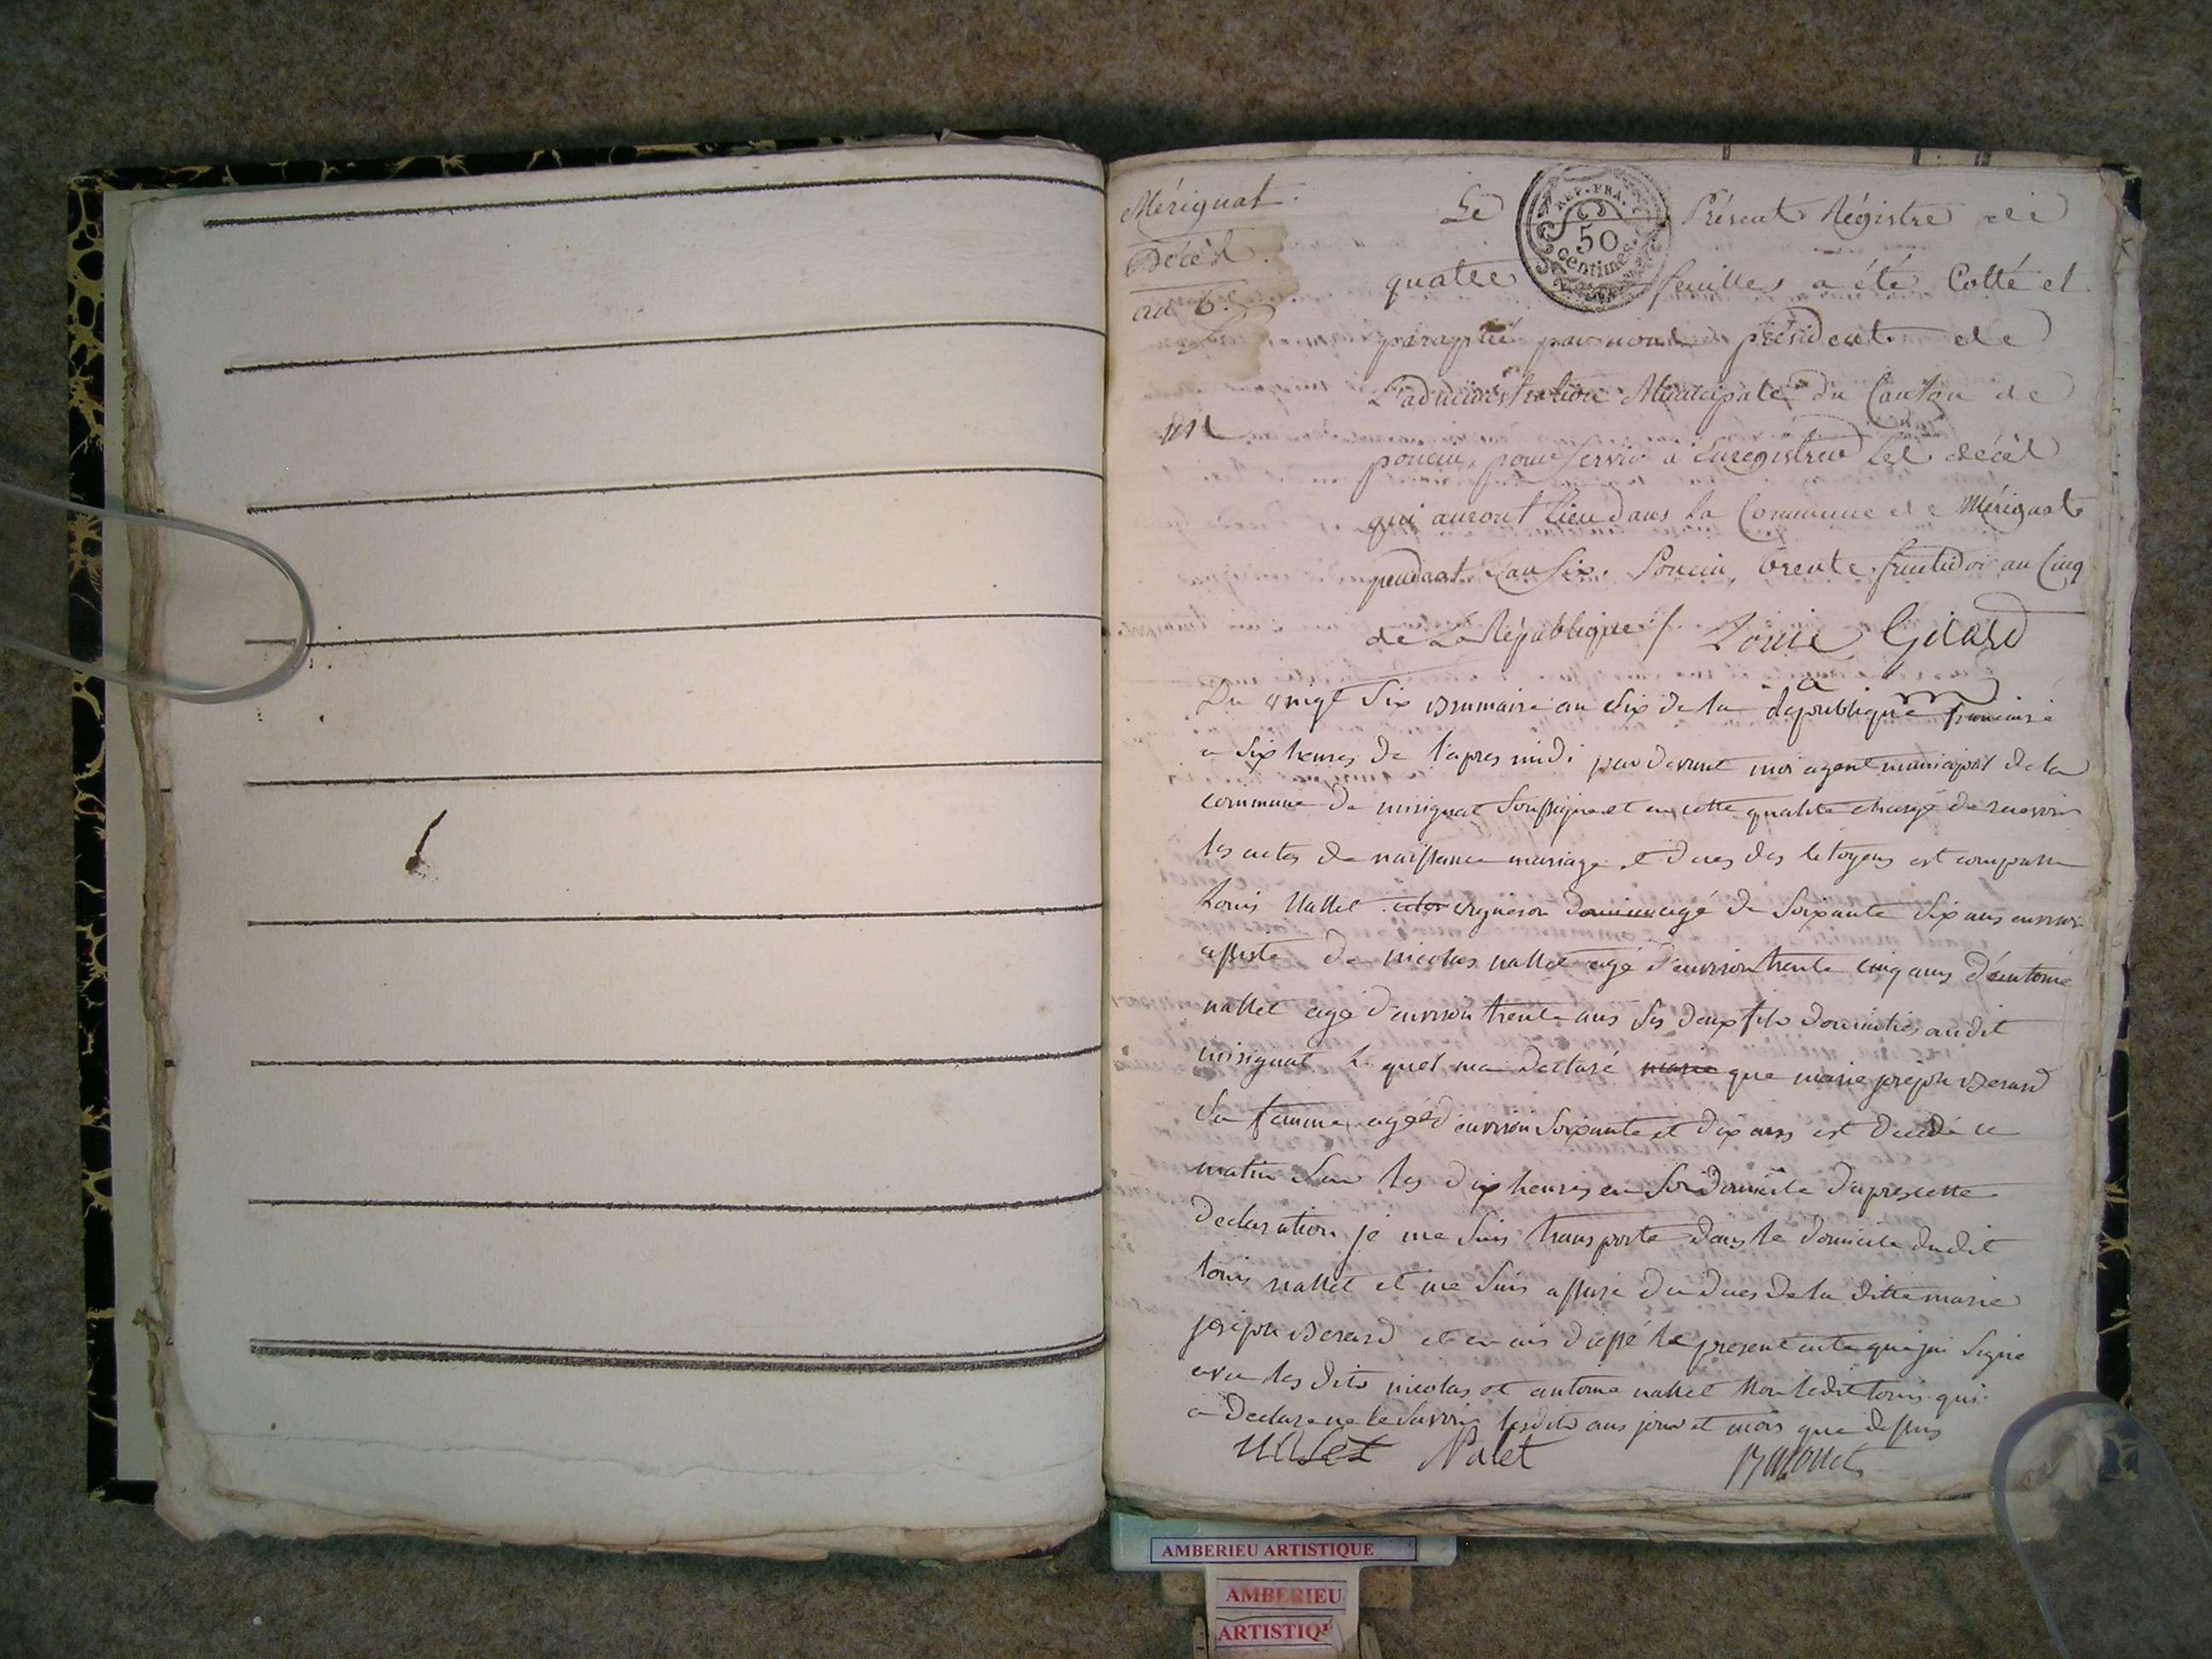 Mérignat.
Décès.
an 6.e
REP. FRA.
50
centimes
Le Présent Régistre de
quatre feuilles a été Cotté et
paraphé par nous président de
L'administration Municipale du Canton de
poncin, pour servir a Enregistrer Les décès
qui auront lieu dans la Commune de Mérignat
pendant L'an six. Poncin, trente fructidor an Cinq
de La République /. Louis Girard
Du vingt six Brumaire an six de la republique francaise
a six heures de l'apres midi par devant moi agent municipal de la
commune de merignat soussigne et en cette qualite chargé de recevoir
les actes de naissance mariage et deces des citoyens est comparu
Louis Nallet vigneron agé de soixante six ans environ
assisté de nicolas nallet agé d'environ trente cinq ans d'antoine
nallet agé d'environ trente ans ses deux fils domiciliés audit
merignat le quel ma declaré que marie joseph Berard
sa femme agée d'environ soixante et dix ans est decedé ce
matin sur les dix heures en son domicile d'apres cette
declaration je me suis transporté dans le domicile dudit
louis nallet et me suis assuré du deces de la ditte marie
joseph Berard et en ais dressé le present acte que jai signé
avec les dits nicolas et antoine nallet non ledit louis qui
a declaré ne le savoir lesdits ans jour et mois que dessus
Nalet
AMBERIEU ARTISTIQUE
AMBERIEU
ARTISTIQU